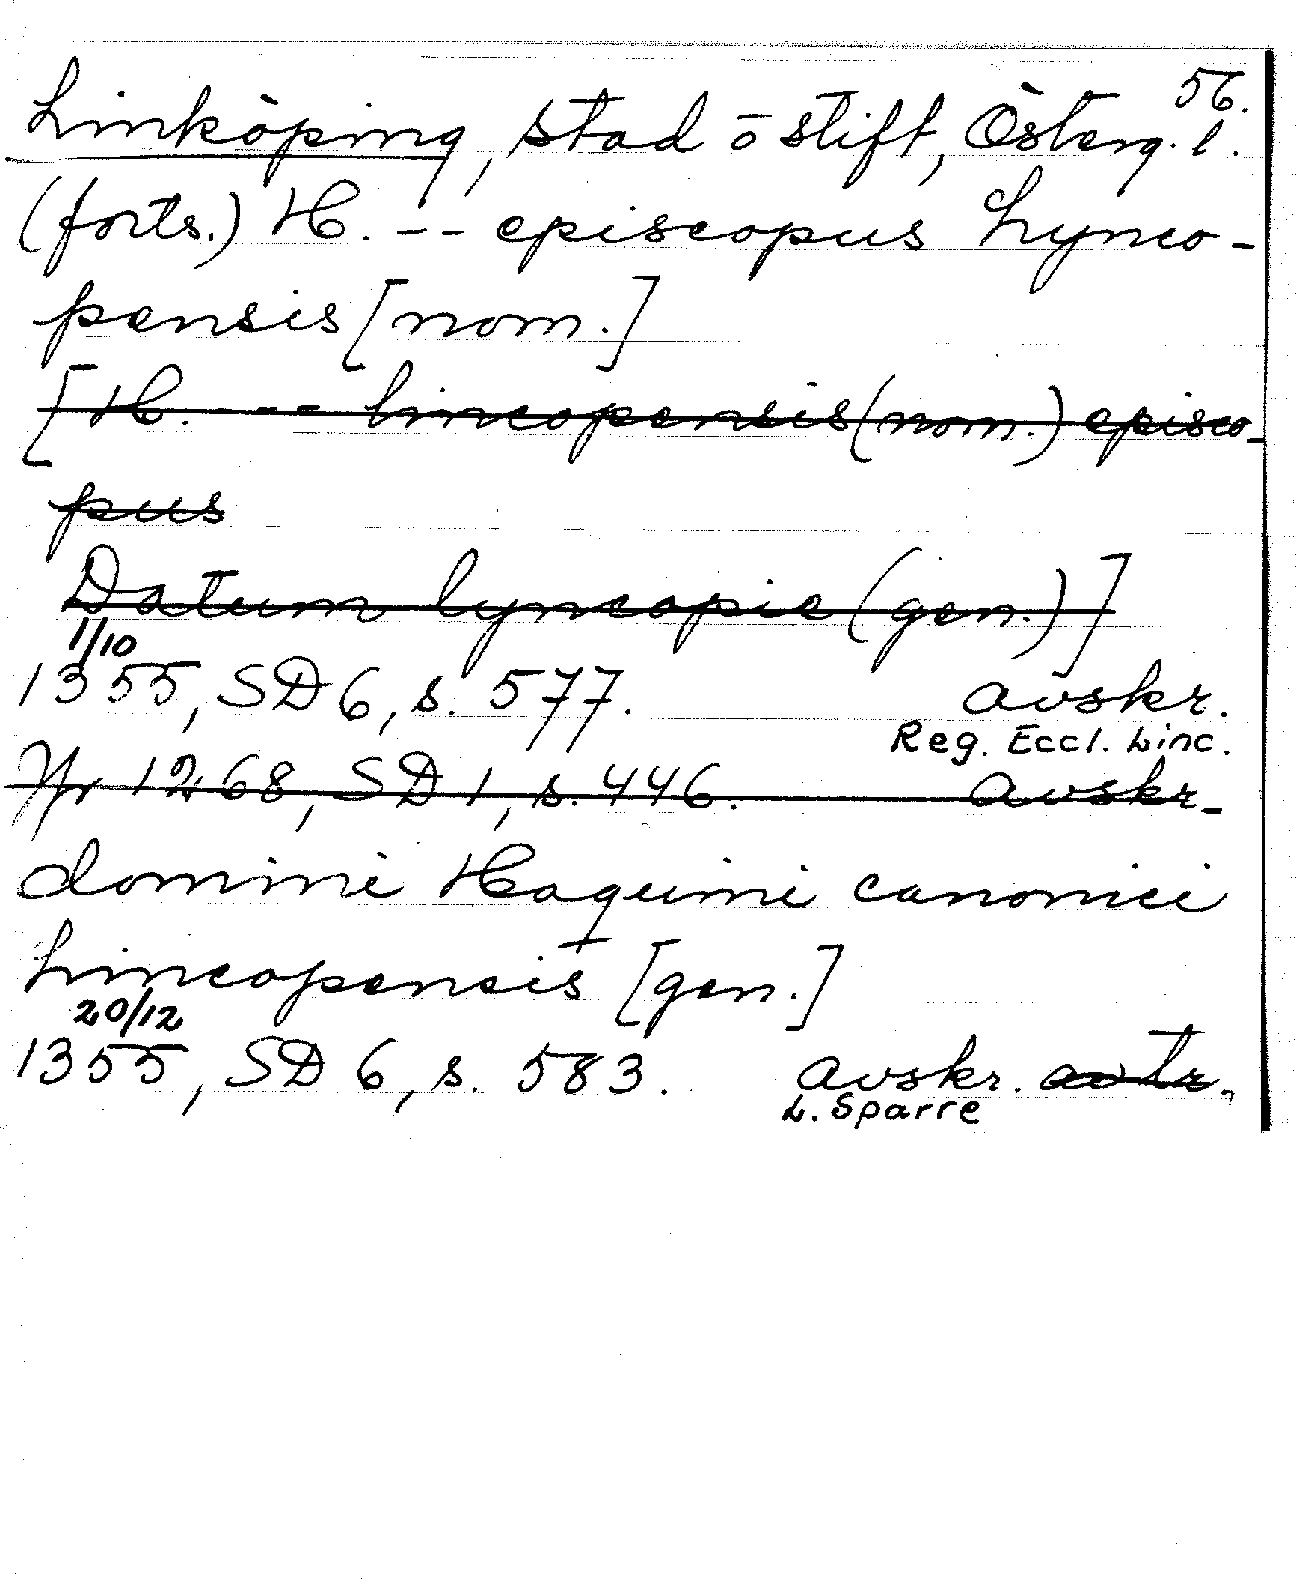 56.
Linköping, stad o stift, Österg. l.
(forts.) H. -- episcopus Lynco-
pensis [nom.]
[H. --- lincopensis (nom.) episco-
pus
Datum lyncopie (gen.)]
1/10
1355, SD 6, s. 577. avskr.
Reg. Eccl. Linc.
1268, SD 1, s. 446. avskr.
domini Haquini canonici
Lincopensis [gen.]
20/12
1355, SD 6, s. 583. avskr. avtr.
L. Sparre